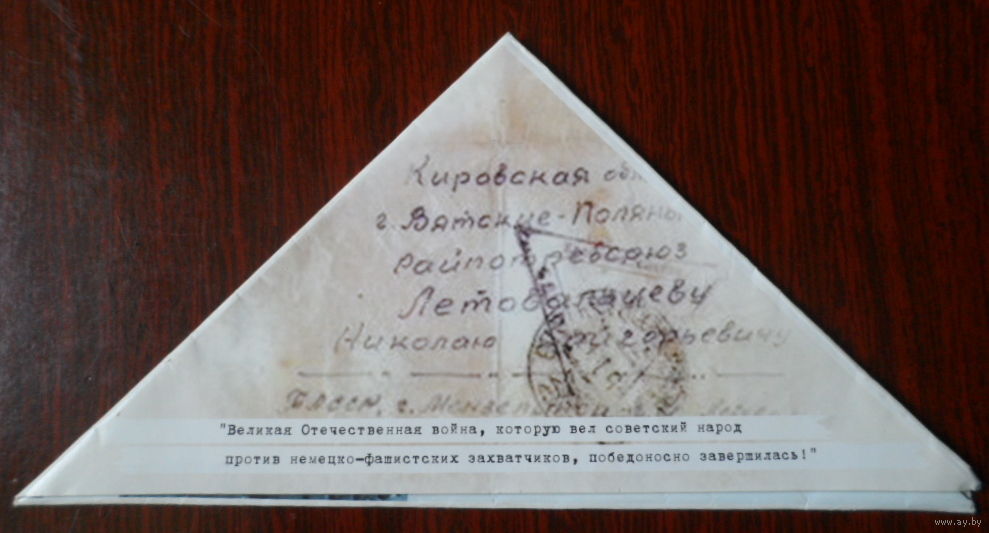 Кировская обл
г. Вятские-Поляны
Райпотребсоюз
Николаю Григорьевичу
г.
"Великая Отечественная война, которую вел советский народ
против немецко-фашистских захватчиков, победоносно завершилась!"
www.ay.by